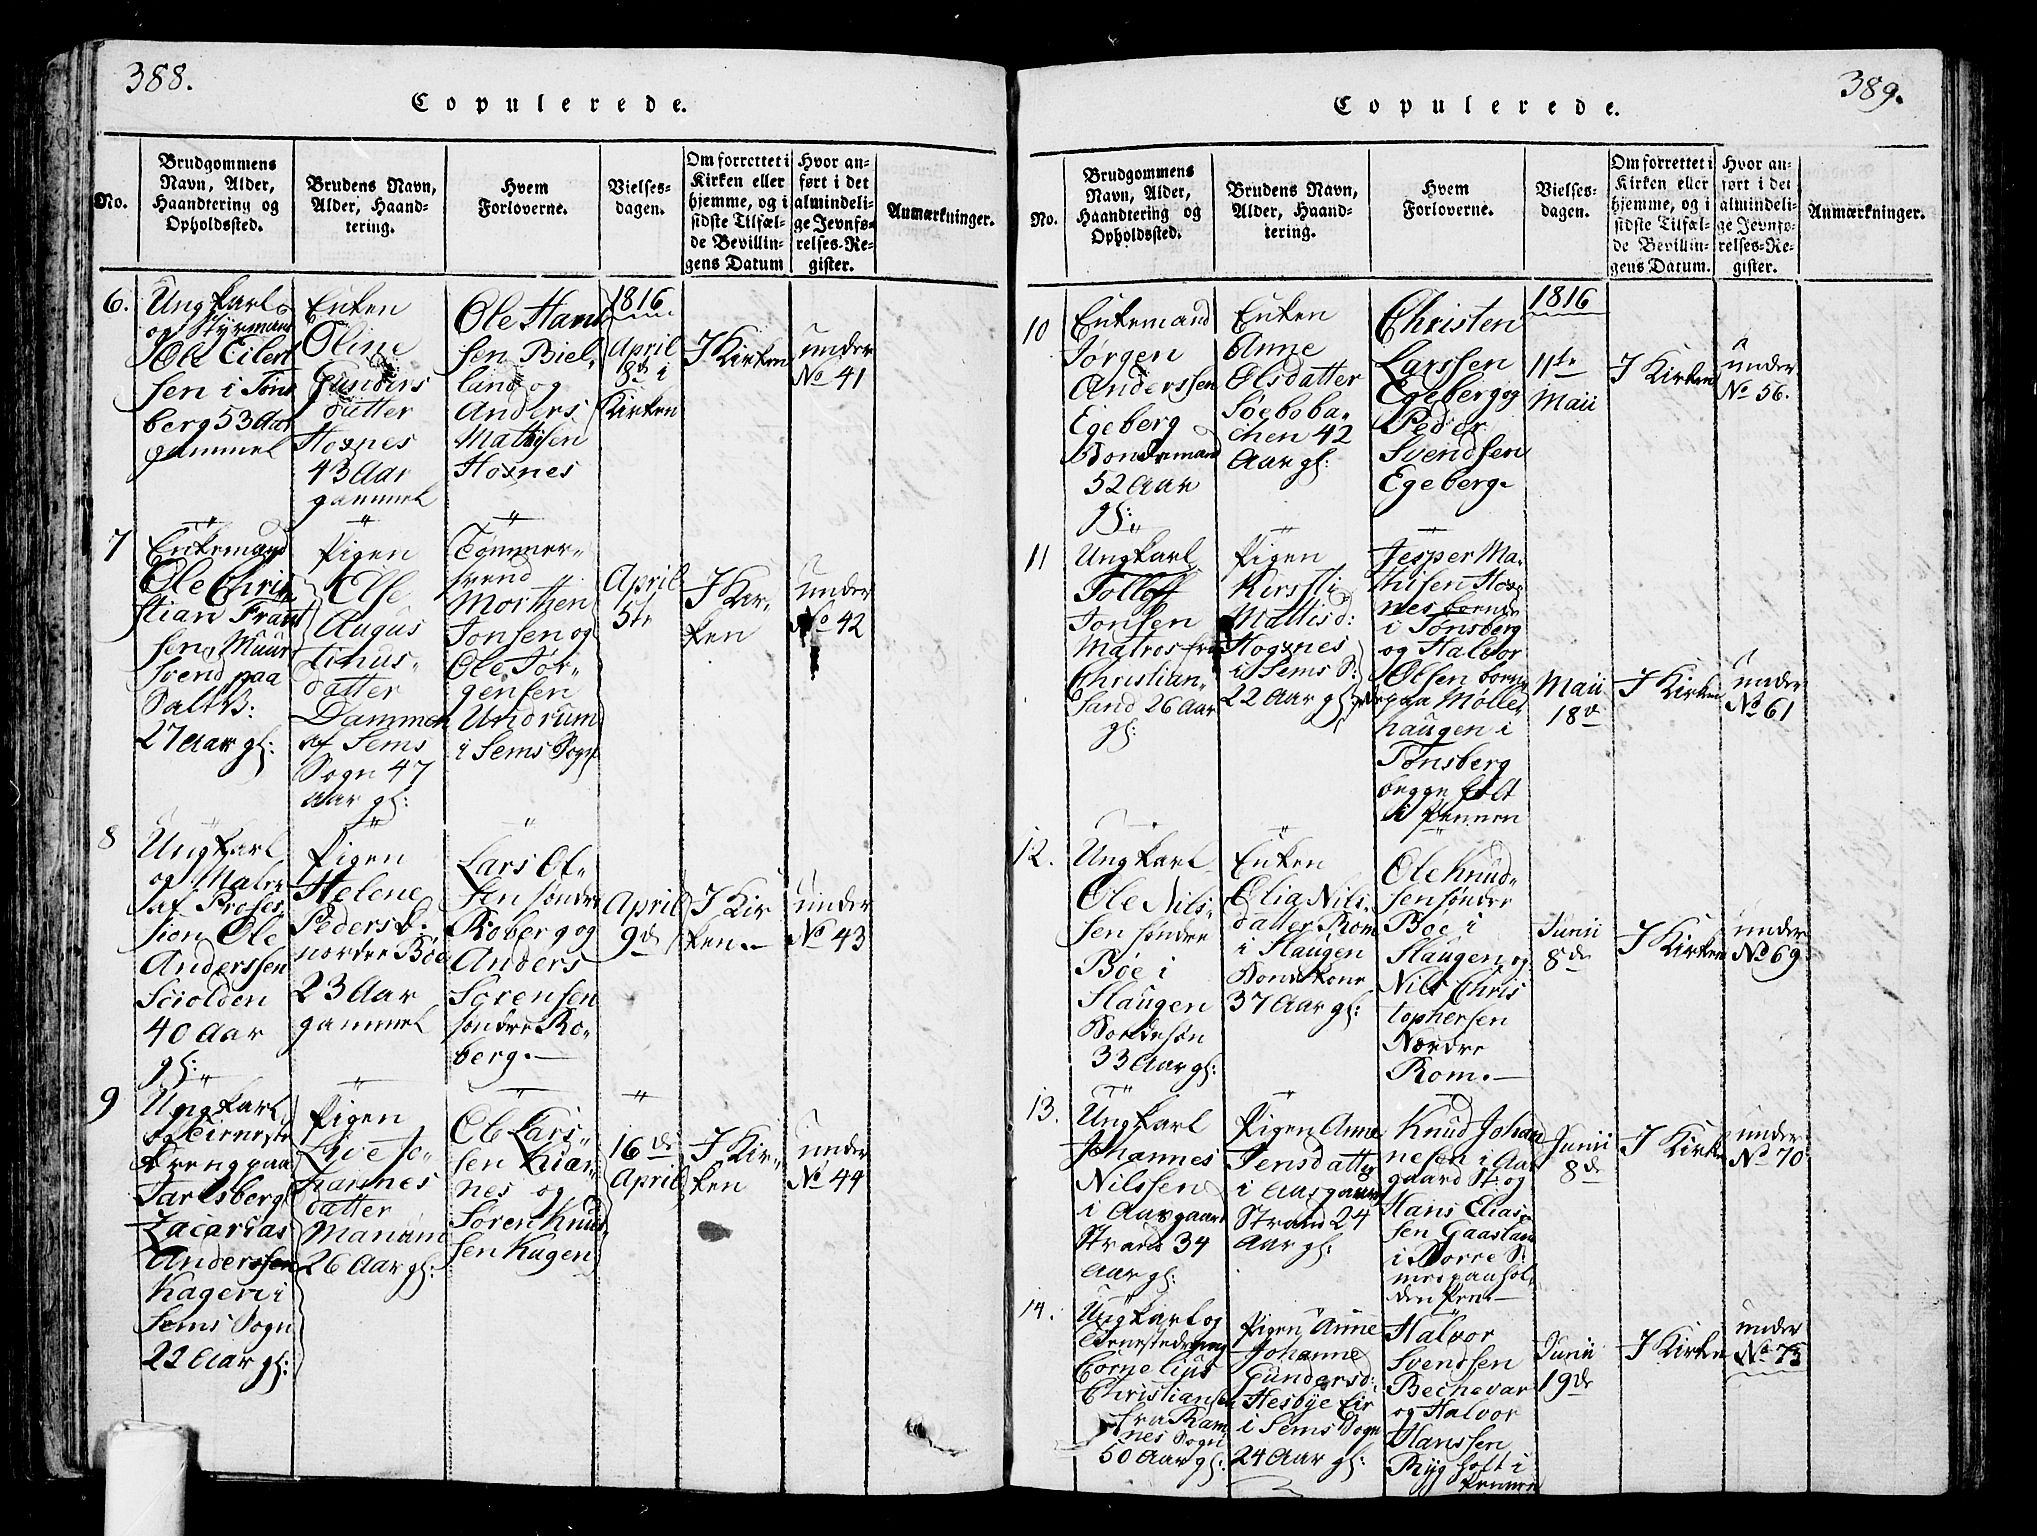 388.
Copulerede.
No.
Brudgommens
Navn, Alder,
Haandtering og
Opholdssted.
Brudens Navn,
Alder, Haand-
tering.
Hvem
Forloverne.
Vielses-
dagen.
Om forrettet i
Kirken eller
hjemme, og i
sidste Tilfæl-
de Bevillin-
gens Datum
Hvor an-
ført i det
almindeli-
ge Jevnfø-
relses-Re-
gister.
Anmærkninger.
6.
Ungkarl
og Styrmand
Ole Eilert
sen i Tøns
berg 53 Aar
gammel
Enken
Oline
Gunders
datter
Hoxnes
43 Aar
gammel
Ole Hans
sen Biel-
land og
Anders
Mathisen
Hoxnes
1816
April
8de i
Kirken
I Kirken
under
No 41
7
Enkemand
Ole Chri-
stian Frant
sen, Muur
svend paa
Saltb:
27 Aar gl:
Pigen
Else
Augus
tinus-
datter
Dammen
af Sems
Sogn 47
Aar gl:
Tømmer-
svend
Morthen
Jonsen og
Ole Jør-
gensen
Undrum
i Sems Sogn
April
5te
I Kir-
ken
under
No 42
8
Ungkarl
og Maler
af Profes
sion Ole
Anderssen
Soiolden
40 Aar
gl:
Pigen
Helene
Pedersd:
nordre Bøe
23 Aar
gammel
Lars Ol-
sen søndre
Roberg og
Anders
Sørensen
søndre Ro-
berg.
April
9de
I Kir
ken.
under
No 43
9
Ungkarl
og Tieneste
dreng paa
Jarlsberg
Zacarias
Anderssen
Kagen i
Sems Sogn
22 Aar gl:
Pigen
Live Jo-
hannes
datter
Manum
26 Aar gl:
Ole Lars-
sen Kiær-
nes og
Søren Knud
sen Kagen
16de
April
I Kir-
ken
under
No 44
389.
Copulerede.
No.
Brudgommens
Navn, Alder,
Haandtering og
Opholdssted.
Brudens Navn,
Alder, Haand-
tering.
Hvem
Forloverne.
Vielses-
dagen.
Om forrettet i
Kirken eller
hjemme, og i
sidste Tilfæl-
de Bevillin-
gens Datum.
Hvor an-
ført i det
almindeli-
ge Jevnfø-
relses-Re-
gister.
Anmærkninger.
10
Enkemand
Jørgen
Anderssen
Egeberg
Bondemand
52 Aar
gl:
Enken
Anne
Olsdatter
Søeboba-
chen 42
Aar gl:
Christen
Larssen
Egeberg og
Peder
Svendsen
Egeberg.
1816
11te
Maii
I Kirken
under
No 56.
11
Ungkarl
Tollof
Jonsen
Matros fra
Christian-
sand 26 Aar
gl:
Pigen
Kirsti
Mattisd:
Hogsnes
i Sems S:
22 Aar gl:
Jesper Ma-
thisen Hox-
nes boende
i Tønsberg
og Halvor
Olsen boende
paa Møller
haugen i
Tønsberg
begge holt
i Pennen
Maii
18de
I Kirken
under
No 61
12.
Ungkarl
Ole Nils-
sen søndre
Bøe i
Slaugen
Bondesøn
33 Aar gl:
Enken
Olia Nils-
datter Rom
i Slaugen
Bondekone
37 Aar gl:
Ole Knud-
sen søndre
Bøe i
Slaugen, og
Nils Chris
tophersen
Nordre
Rom.
Junii
8de
I Kirken
under
No 69
13.
Ungkarl
Johannes
Nilssen
i Aasgaard
Strand 34
Aar gl:
Pigen Anne
Jensdatter
i Aasgaard
Strand 24
Aar gl:
Knud Johan
nesen i Aas
gaard St: og
Hans Elias-
sen Gaasland
i Borre S:
med paahol-
den Pen.
Junii
8de
I Kirken
under
No 70
14.
Ungkarl og
Tienestedreng
Cornelius
Christiansen
fra Ram
nes Sogn
50 Aar gl:
Pigen Anne
Johanne
Gundersd:
Hesbye Eie
i Sems Sogn
24 Aar gl:
Halvor
Svenssen
Bechevar
og Halvor
Hanssen
Ryg holt i
Pennen
Junii
19de
I Kirken
under
No 73